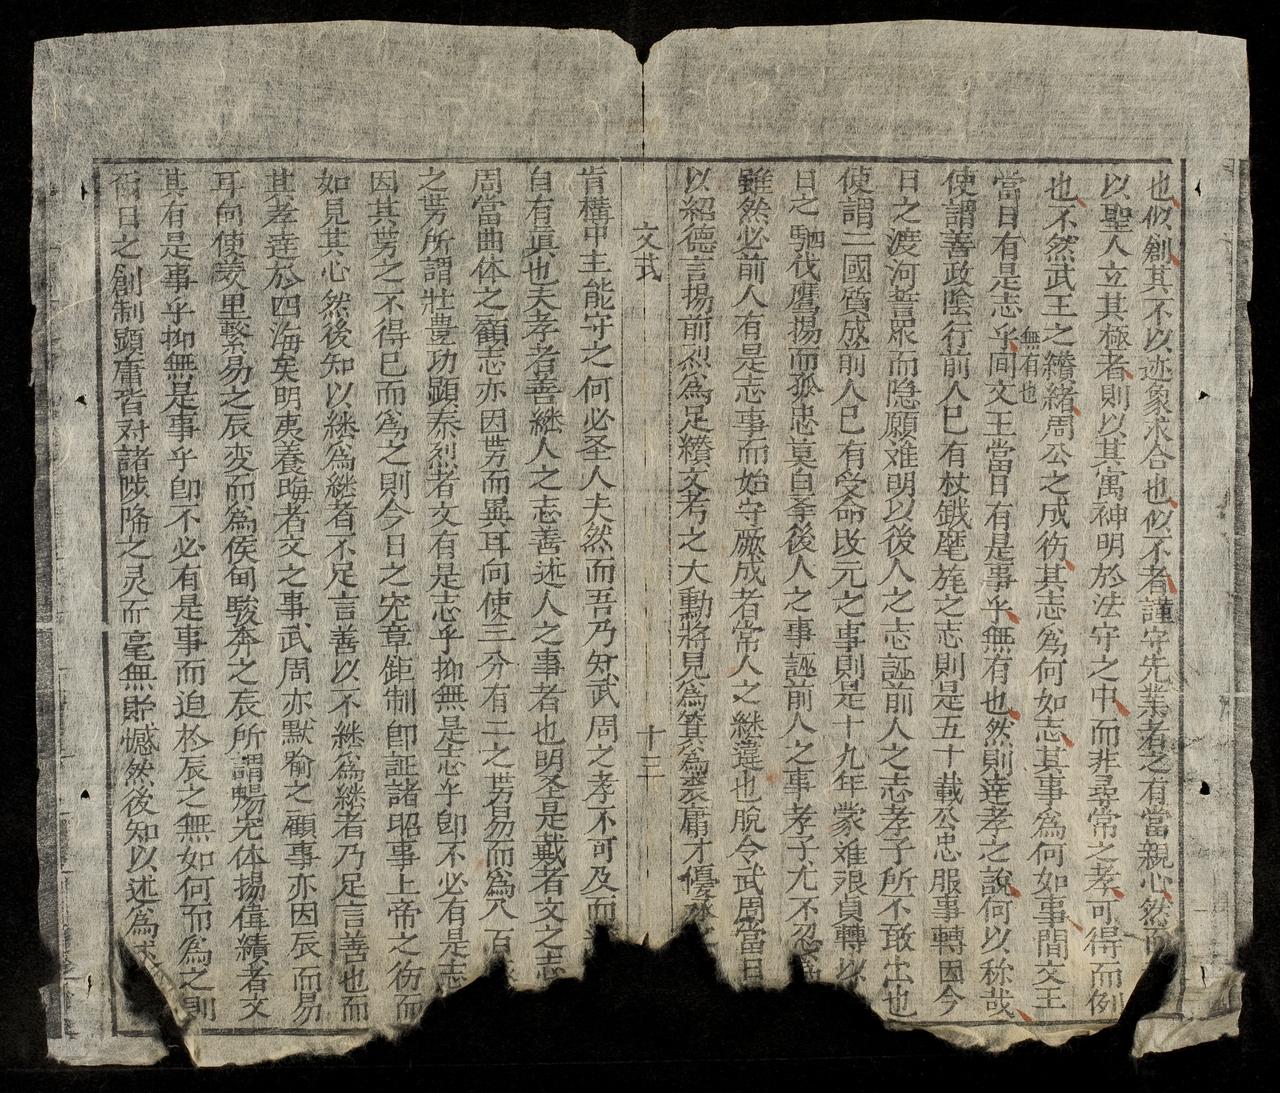 也似創其不以迹象求合也似不者謹守先業者之有當親心然而
以聖人立其極者則以其寓神明於法守之中而非尋常之孝可得而例
也不然武王之纘緒周公之成彷其志為何如志其事為何如事間文王
當日有是志乎間文王當日有是事乎無有也然則達孝之說何以称哉
無有也
使謂善政陰行前人已有杖鉞麾旄之志則是五十載公忠服事轉因今
日之渡河誓眾而隐願难明以後人之志誣前人之志孝子所不敢出也
使謂二國質成前人已有受命改元之事則是十九年蒙难艰貞轉以
日之驅伐鷹揚而孤忠莫白筝後人之事誣前人之事孝子尤不忍
雖然必前人有是志事而始守厥成者常人之継違也脫令武周當日
以紹德言揚前烈為足纘文考之大勳將見為箕為裘庸才優
文式
十三
肯構中主能守之何必圣人夫然而吾乃知武周之孝不可及而
自有真也夫孝者善継人之志善述人之事者也明圣是戴者文之志
周當曲体之顧志亦因势而異耳向使三分有二之势忽而為八百
之势所謂壯豊功顕泰烈者文有是志乎抑無是志乎即不必有是志
因其势之不得已而為之則今日之宪章鉅制即証諸昭事上帝之彷而
如見其心然後知以継為継者不足言善以不継為継者乃足言善也而
其孝達於四海矣明夷養晦者文之事武周亦默喻之顧事亦因辰而易
耳向使羑里繫易之辰变而為侯甸駿奔之辰所謂暢宏体揚偉績者文
其有是事乎抑無是事乎即不必有是事而迫於辰之無如何而為之則
今日之創制顕庸皆对諸陟降之灵而毫無貽憾然後知以述為